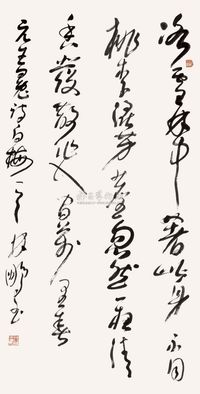 冰雪林中著此身不同
桃李混芳塵忽然一夜清
香發散作乾坤萬里春
元王冕詩白梅一